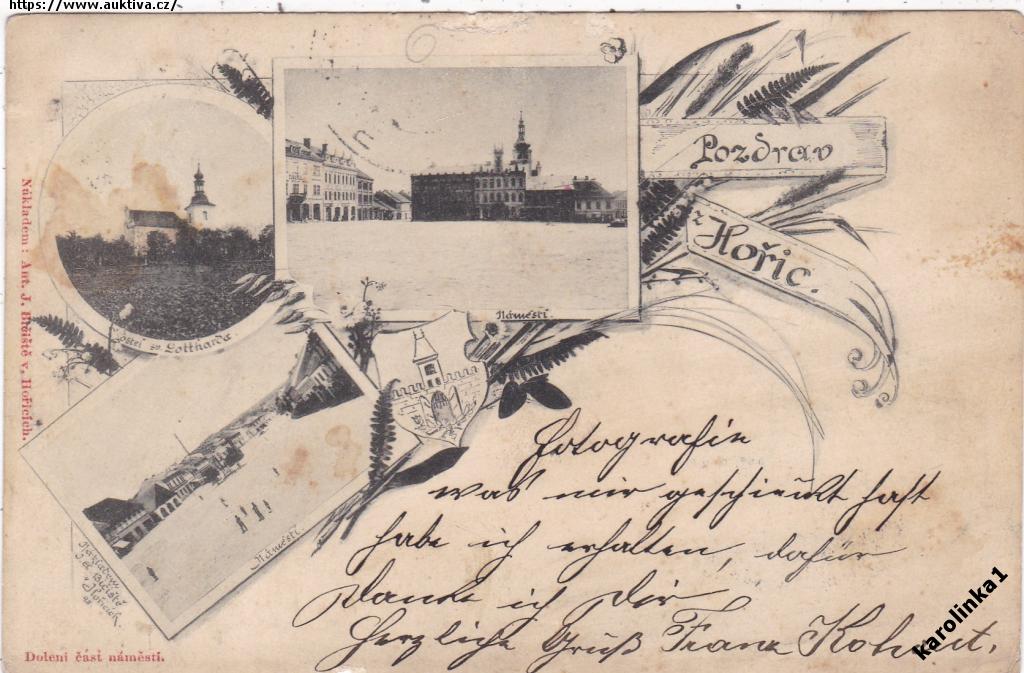 https://www.auktiva.cz/
Pozdrav
z Hořic.
Náměstí.
sv. Lottharda
Nákladem: Ant. J. v. Hořicích.
Náměstí.
Nákladem
Dolení část náměstí.
Fotografie
was mir geschickt hast
habe ich erhalten, dafür
Danke ich Dir
Herzliche Gruß Franz
karolinka1